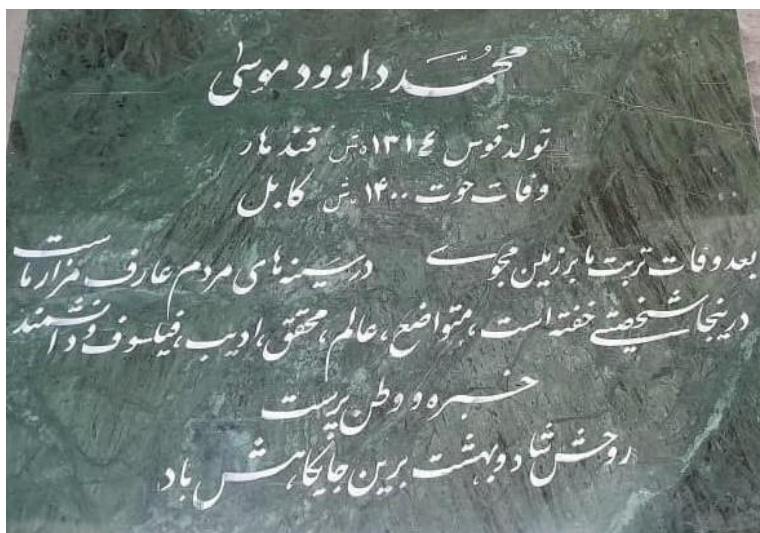 محمّد داوود موسیٰ
تولد قوس ۱۳۱۴ هـ ش قندهار
وفات حوت ۱۴۰۰ هـ ش کابل
بعد وفات تربت ما بر زمین مجوی در سینه های مردم عارف مزار ماست
درینجا شخصیتی خفته است، متواضع، عالم، محقق، ادیب، فیلسوف و دانشمند
خبره و وطن پرست
روحش شاد و بهشت برین جایگاهش باد